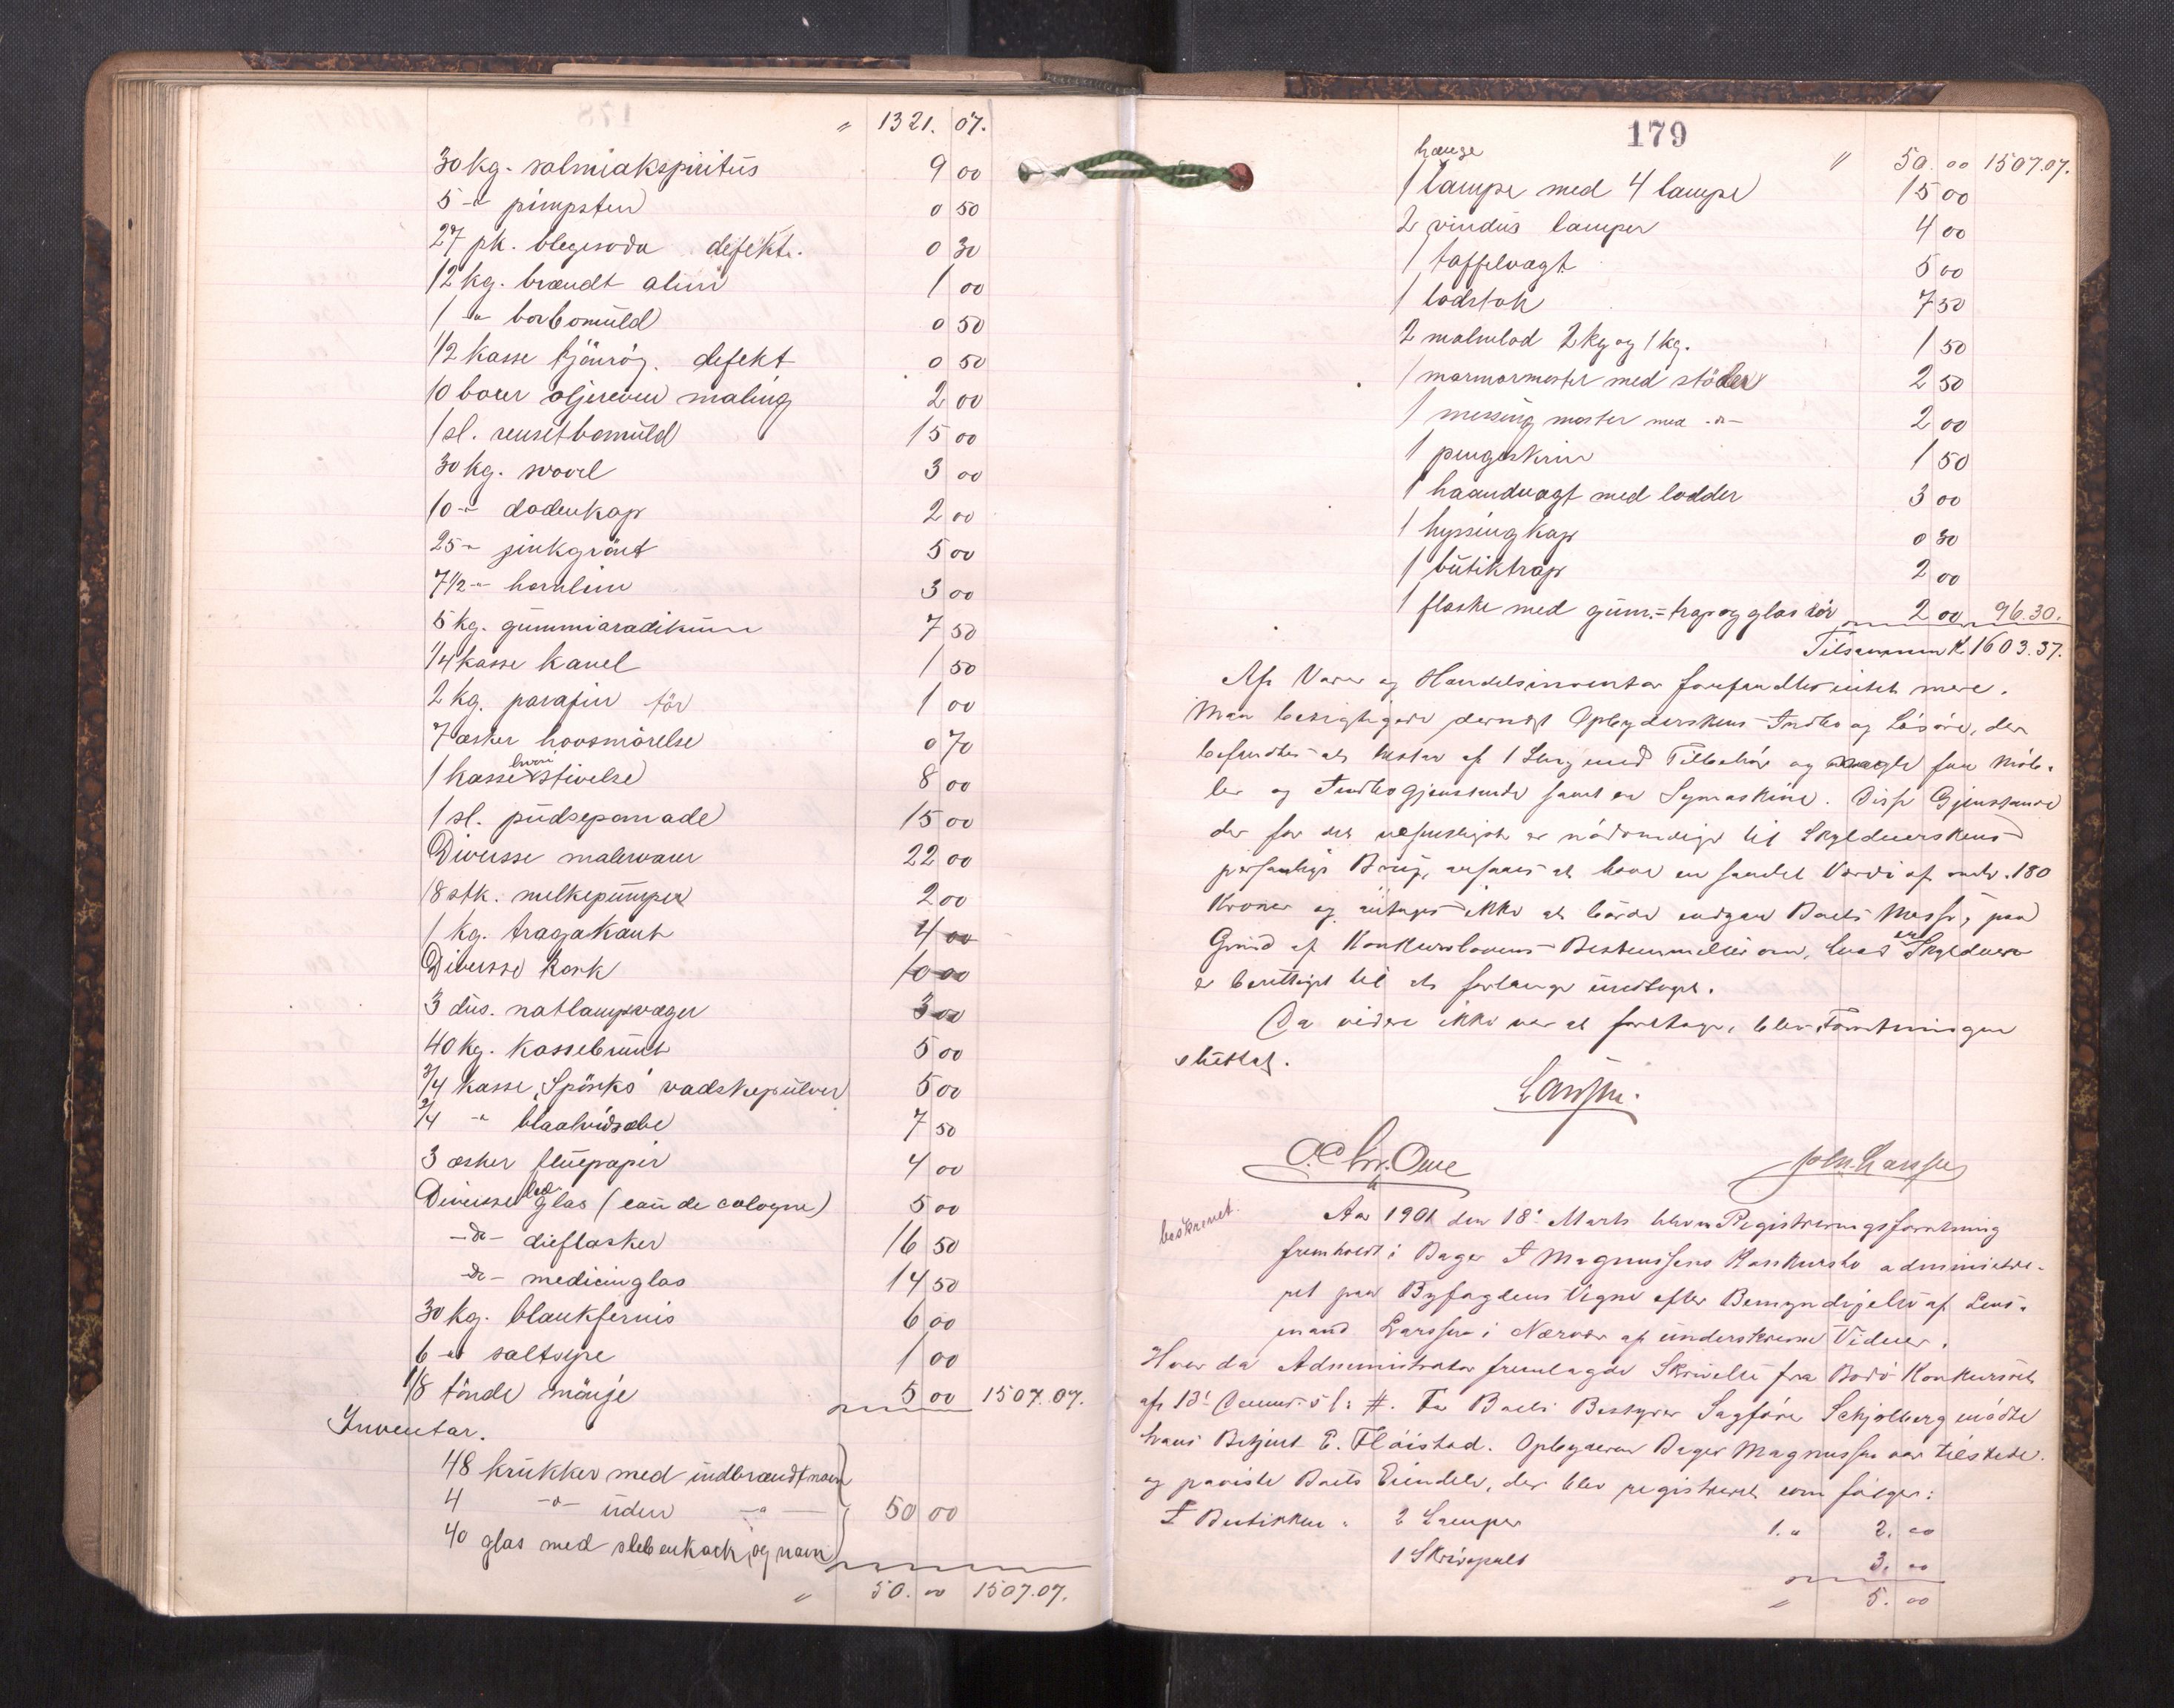 " 1321. 07.
30 kg. salmiakspiritus 9 00
5 -"- pimpsten 0 50
27 pk. blegesoda defekt. 0 30
12 kg. brændt alun 1 00
1 -"- borbomuld 0 50
1/2 kasse kjönrög. defekt 0 50
10 boxer oljereven maling 2 00
1 sl. renset bomuld 15 00
30 kg. svovel 3 00
10 -"- dodenkop 2 00
25 -"- zinkgrönt 5 00
7 1/2 -"- hornlim 3 00
5 kg. gummiaradikum 7 50
1/4 kasse kanel 1 50
2 kg. parafin tör 1 00
7 æsker hovsmörelse 0 70
1 kasse stivelse 8 00
1 sl. pudsepomade 15 00
Diversse malervarer 22 00
18 stk. melkepumper 2 00
1 kg. tragakant 4 00
Diversse kork 10 00
3 dus. natlampevæger 3 00
40 kg. Kasselbrunt 5 00
3/4 kasse "Spörks" vadskepulver 5 00
3/4 -"- blaahvidsæbe 7 50
3 æsker fluepapir 4 00
Diversse glas (eau de cologne) 5 00
-do- dieflasker 16 50
-do- medicinglas 14 50
30 kg. blankfernis 6 00
6 -"- saltsyre 1 00
1/8 tönde mönje 5 00 1507.07.
Inventar.
48 krukker med indbrændt navn
4 -"- uden -"- 50 00
40 glas med sleben kork og navn
" 50. 00 1507.07.
179
" 50. 00 1507.07.
hænge
1 lampe med 4 lampe 15 00
2 vindus lamper 4 00
1 taffelvægt 5 00
1 lodstok 7 50
2 malmlod 2 kg og 1 kg. 1 50
1 marmormorter med stöder 2 50
1 messing morter med -"- 2 00
1 pengeskrin 1 50
1 haandvægt med lodder 3 00
1 hyssingkop 0 30
1 butiktrap 2 00
1 flaske med gum.= trap og glasrör 2 00 96.30.
Tilsammen Kr 1603.37.
Af Varer og Handelsinventar forefandtes intet mere.
Man besigtigede dernæst Opbyderskens Indbo og Lösöre, der
befandtes at bestaa af 1 Seng med Tilbehör og nogle faa Möb-
ler og Indbogjenstande samt en Symaskine. Disse Gjenstande
der for det væsentligste er nödvendige til Skyldnerskens
personlige Brug, ansaaes at have en samlet Værdi af omtr. 180
Kroner og antages ikke at burde indgaa Boets Masse, paa
Grund af Konkurslovens Bestemmelser om, hvad en Skyldner
er berettiget til at forlange undtaget.
Da videre ikke var at foretage, blev Forretningen
sluttet.
Larssen.
O. Chr. Owe Joh. Larssen
beskrevet.
Aar 1901 den 18' Marts blev Registreringsforretning
fremholdt i Bager J Magnussens Konkursbo administre-
ret paa Byfogdens Vegne efter Bemyndigelse af Lens-
mand Larssen i Nærvær af underskrevne Vidner.
Hvor da Administrator fremlagde Skrivelse fra Bodö Konkursret
af 13' dennes sl: #. For Boets Bestyrer Sagförer Schjelberg mödte
hans Betjent E. Flöistad. Opbyderen Bager Magnussen var tilstede
og paaviste Boets Eiendele, der blev registreret som fölger:
I Butikken: 2 Lamper 1. " 2. 00
1 Skrivepult 3. 00
" 5. 00